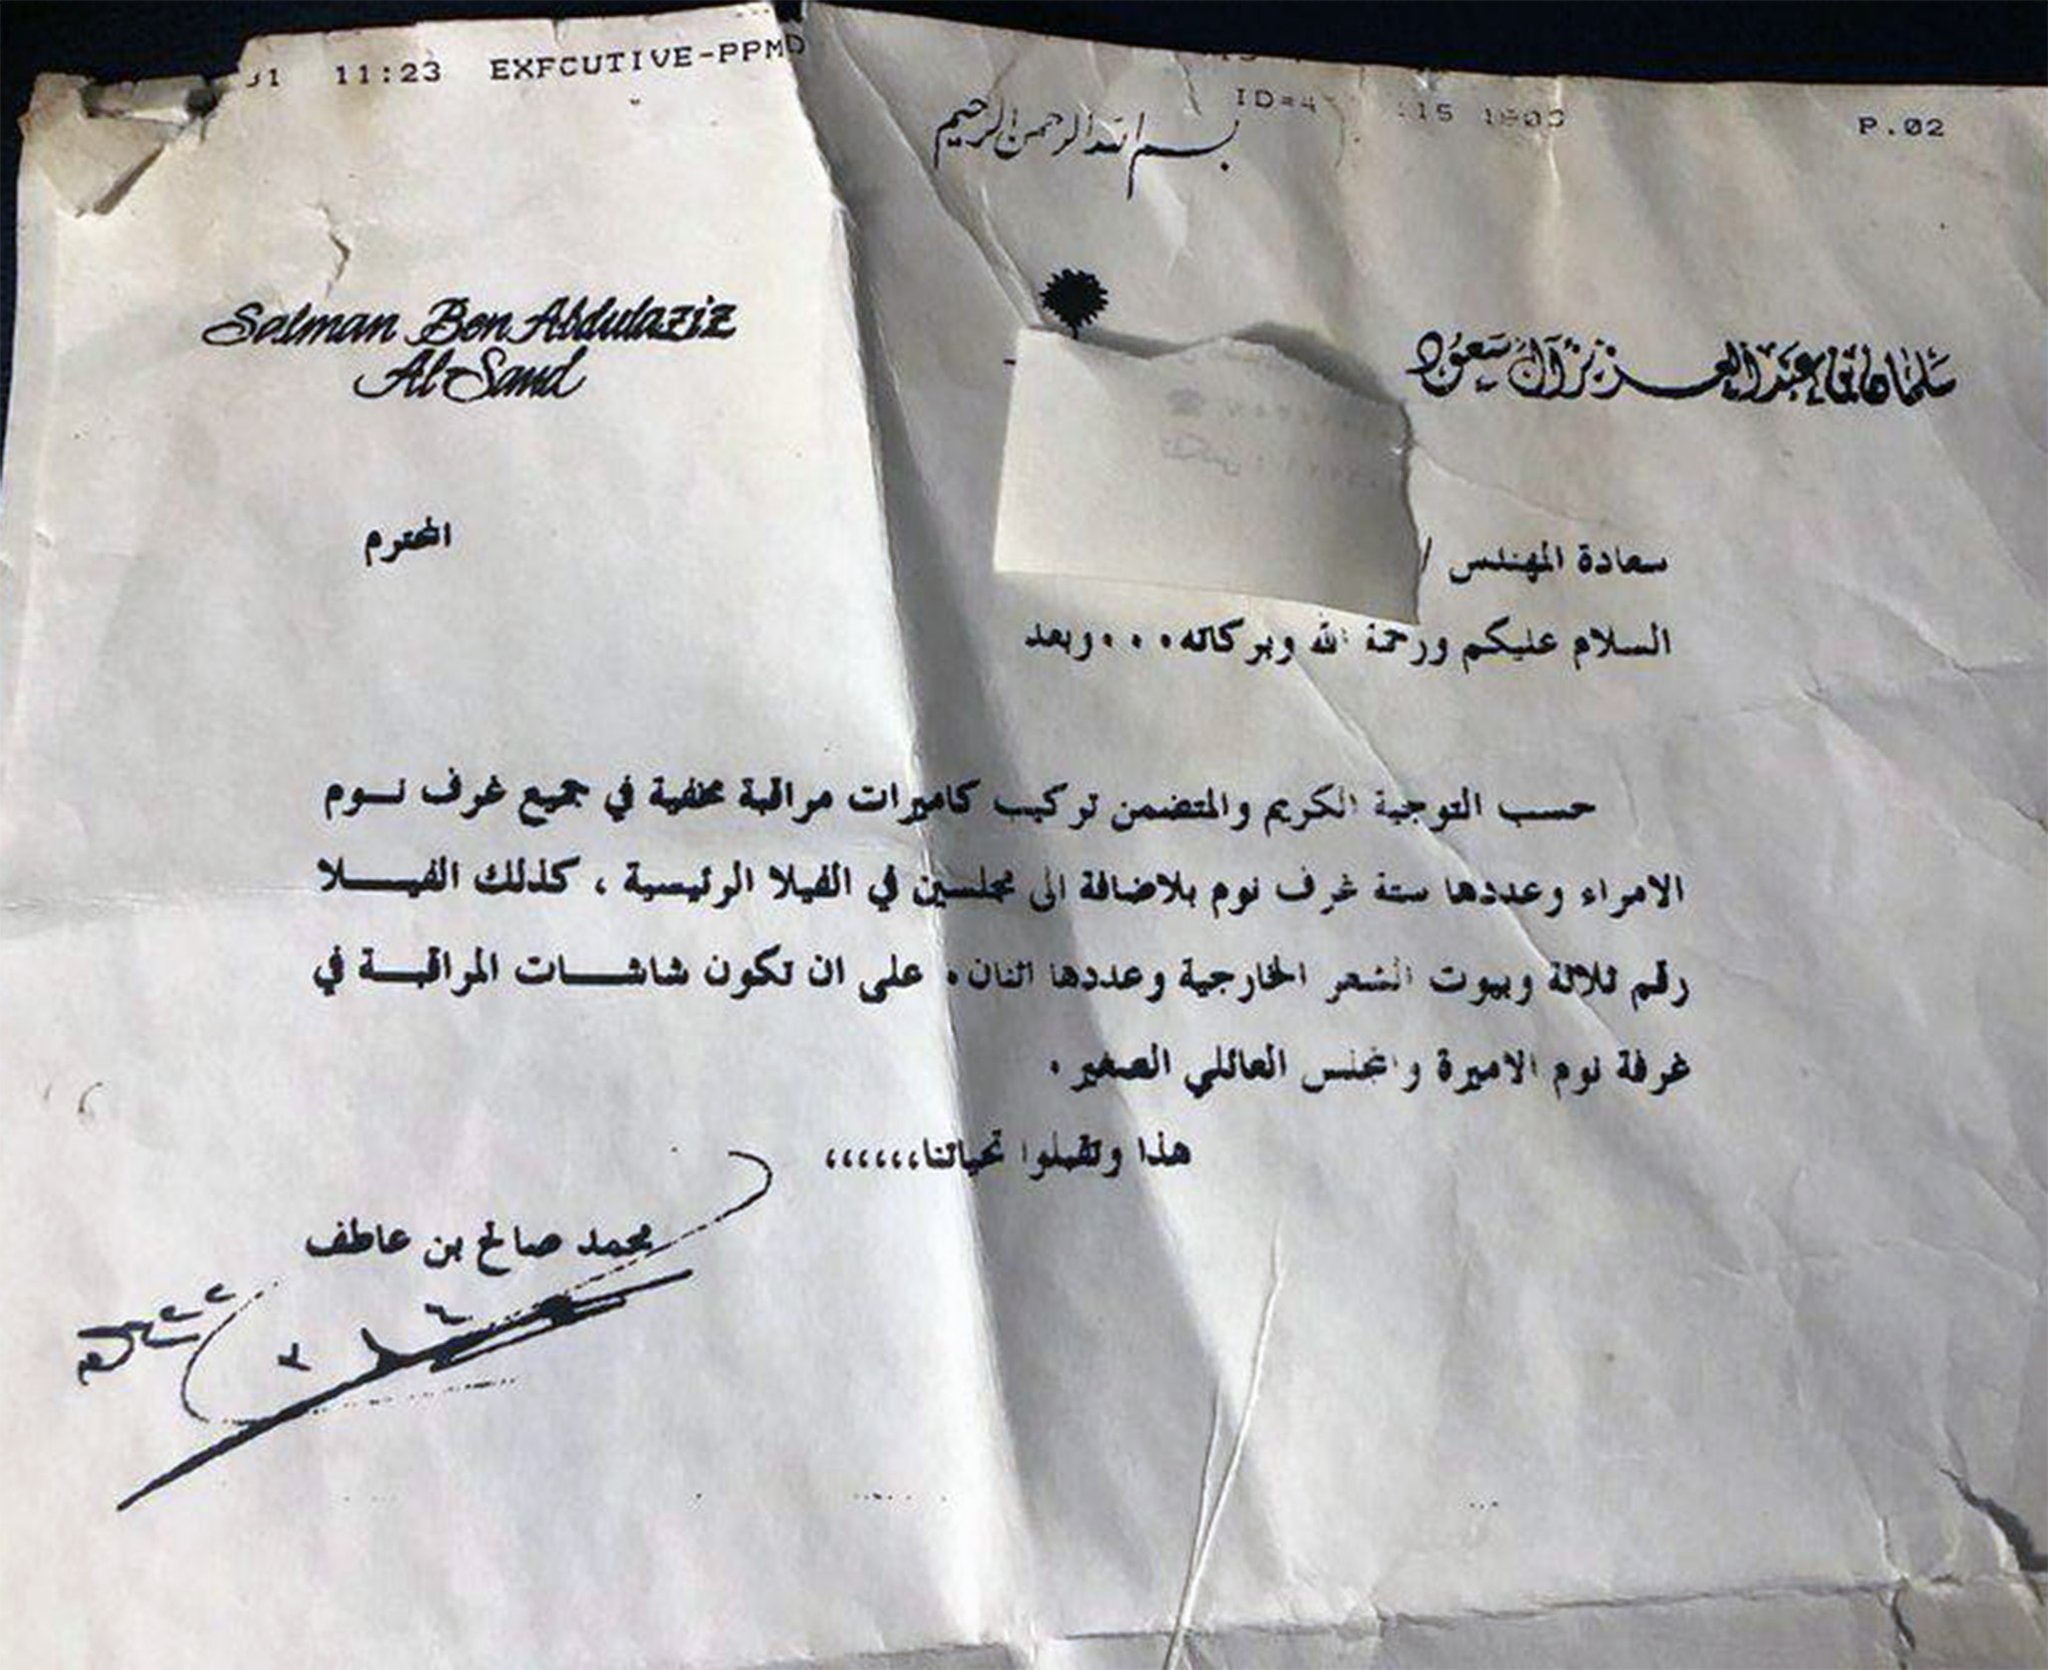 11:23 EXFCUTIVE-PPMD
P.02
بسم الله الرحمن الرحيم
Salman Ben Abdulaziz
Al-Saud
سلمان بن عبد العزيز آل سعود
سعادة المهندس / المحترم
السلام عليكم ورحمة الله وبركاته ٠٠٠ وبعد
حسب التوجية الكريم والمتضمن تركيب كاميرات مراقبة مخفية في جميع غرف نوم
الامراء وعددها ستة غرف نوم بلاضافة الى مجلسين في الفيلا الرئيسية ، كذلك الفيلا
رقم ثلاثة وبيوت الشعر الخارجية وعددها اثنان . على ان تكون شاشات المراقبة في
غرفة نوم الاميرة والمجلس العائلي الصغير .
هذا وتقبلوا تحياتنا،،،،،،
محمد صالح بن عاطف